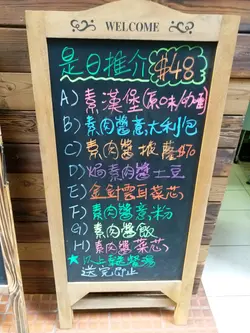 WELCOME
是日推介 $48
A) 素漢堡(原味/
B) 素肉醬意大利包
C) 素肉醬披薩$70
D) 焗素肉醬土豆
E) 金針雲耳菜芯
F) 素肉醬意粉
G) 素肉醬飯
H) 素肉醬菜芯
以上
送完即止
WELCOME